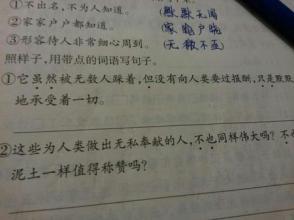 ①不出名,不为人知道。 (默默无闻
②家家户户都知道。 (家喻户晓
③形容待人非常细心周到。 (无微不至)
照样子,用带点的词语写句子。
①它虽然被无数人踩着,但没有向人类要过报酬,只是默默
地承受着一切。
②这些为人类做出无私奉献的人,不也同样伟大吗?
泥土一样值得称赞吗?